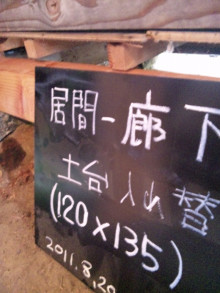 居間-廊下
土台入れ替
(120×135)
2011.8.20